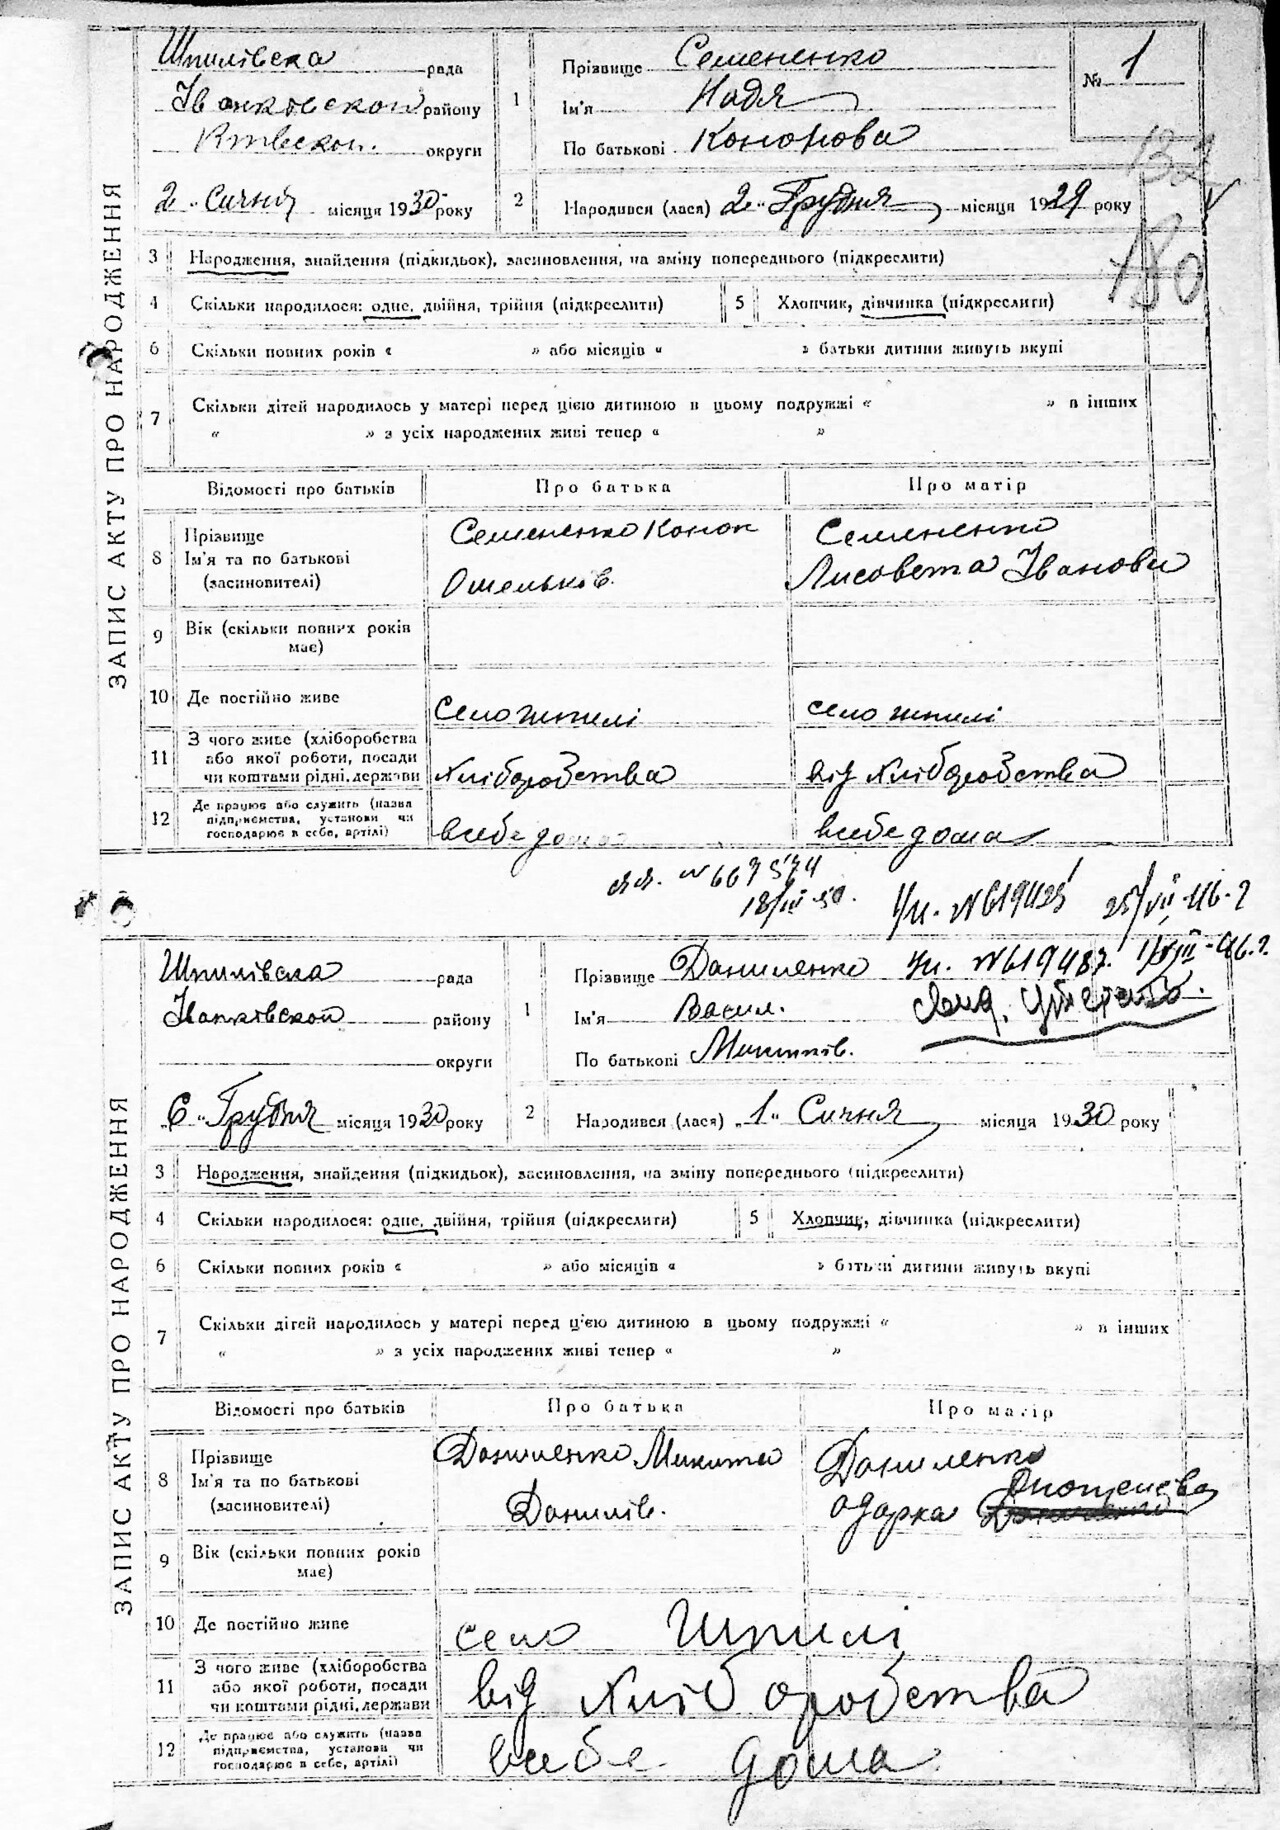 ЗАПИС АКТУ ПРО НАРОДЖЕННЯ
Шпилівска рада
Іванковскои району
округи
2 „ Сичня місяця 1930 року
1 Прізвище Семененко
Ім'я Надя
По батькові Кононова
№ 1
132
180
2 Народився (лася) 2 „ Грудня місяця 1929 року
3 Народження, знайдення (підкидьок), засиновлення, на зміну попереднього (підкреслити)
4 Скільки народилося: одне, двійня, трійня (підкреслити) 5 Хлопчик, дівчинка (підкреслити)
6 Скільки повних років « » або місяців « » батьки дитини живуть вкупі
7 Скільки дітей народилось у матері перед цією дитиною в цьому подружжі « » в інших
« » з усіх народжених живі тепер « »
Відомості про батьків Про батька Про матір
8 Прізвище
Ім'я та по батькові
(засиновителі)
Семененко Конон
Омельков.
Семененко
Лисовета Іванови
9 Вік (скільки повних років
має)
10 Де постійно живе село шпилі село шпилі
11 З чого живе (хліборобства
або якої роботи, посади
чи коштами рідні, держави
хліборобства від хліборобства
12 Де працює або служить (назва
підприємства, установи чи
господарює в себе, артілі)
всебе дома всебе дома
№ 667574
18/III-50.
№ 619425 25/VII-46.г
ЗАПИС АКТУ ПРО НАРОДЖЕННЯ
Шпилівска рада
Іванковскои району
округи
6 „ Грудня місяця 1930 року
1 Прізвище Даниленко
№ 619487.
Ім'я Васил.
По батькові Микитів.
2 Народився (лася) „1" Сичня місяця 1930 року
3 Народження, знайдення (підкидьок), засиновлення, на зміну попереднього (підкреслити)
4 Скільки народилося: одне, двійня, трійня (підкреслити) 5 Хлопчик, дівчинка (підкреслити)
6 Скільки повних років « » або місяців « » батьки дитини живуть вкупі
7 Скільки дітей народилось у матері перед цією дитиною в цьому подружжі « » в інших
« » з усіх народжених живі тепер « »
Відомості про батьків Про батька Про матір
8 Прізвище
Ім'я та по батькові
(засиновителі)
Даниленко Микита
Данилів.
Даниленко
Одарка
9 Вік (скільки повних років
має)
10 Де постійно живе село Шпилі
11 З чого живе (хліборобства
або якої роботи, посади
чи коштами рідні, держави
від хліборобства
12 Де працює або служить (назва
підприємства, установи чи
господарює в себе, артілі)
всебе дома